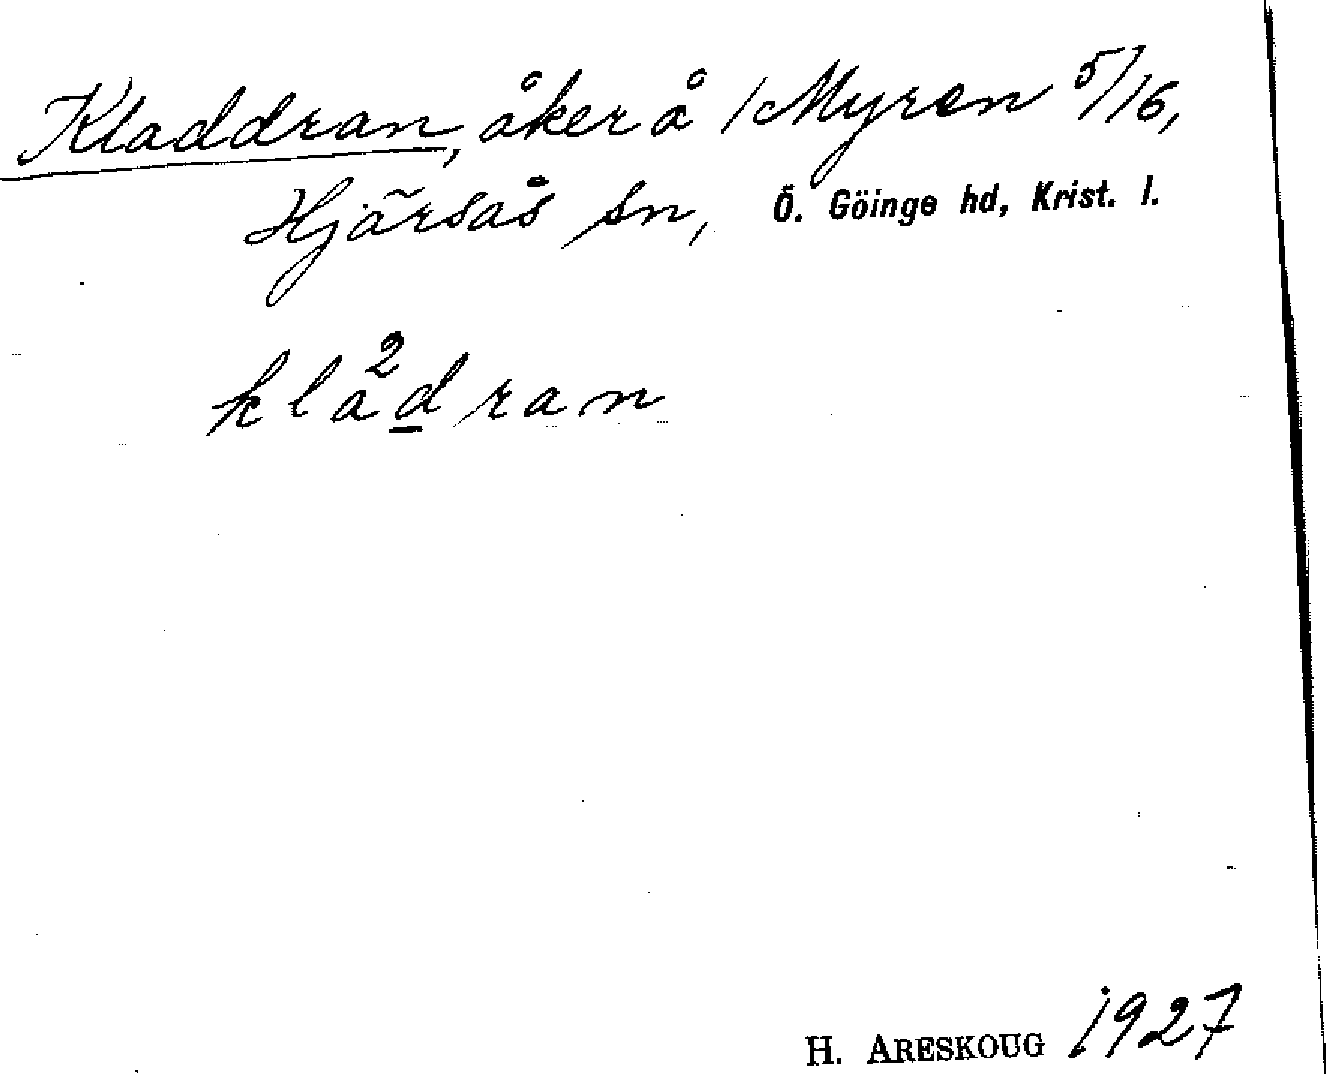 Kladdran, åker å /Myren 5/16,
Hjärsås sn, Ö. Göinge hd, Krist. l.
kla²dran
H. ARESKOUG 1927